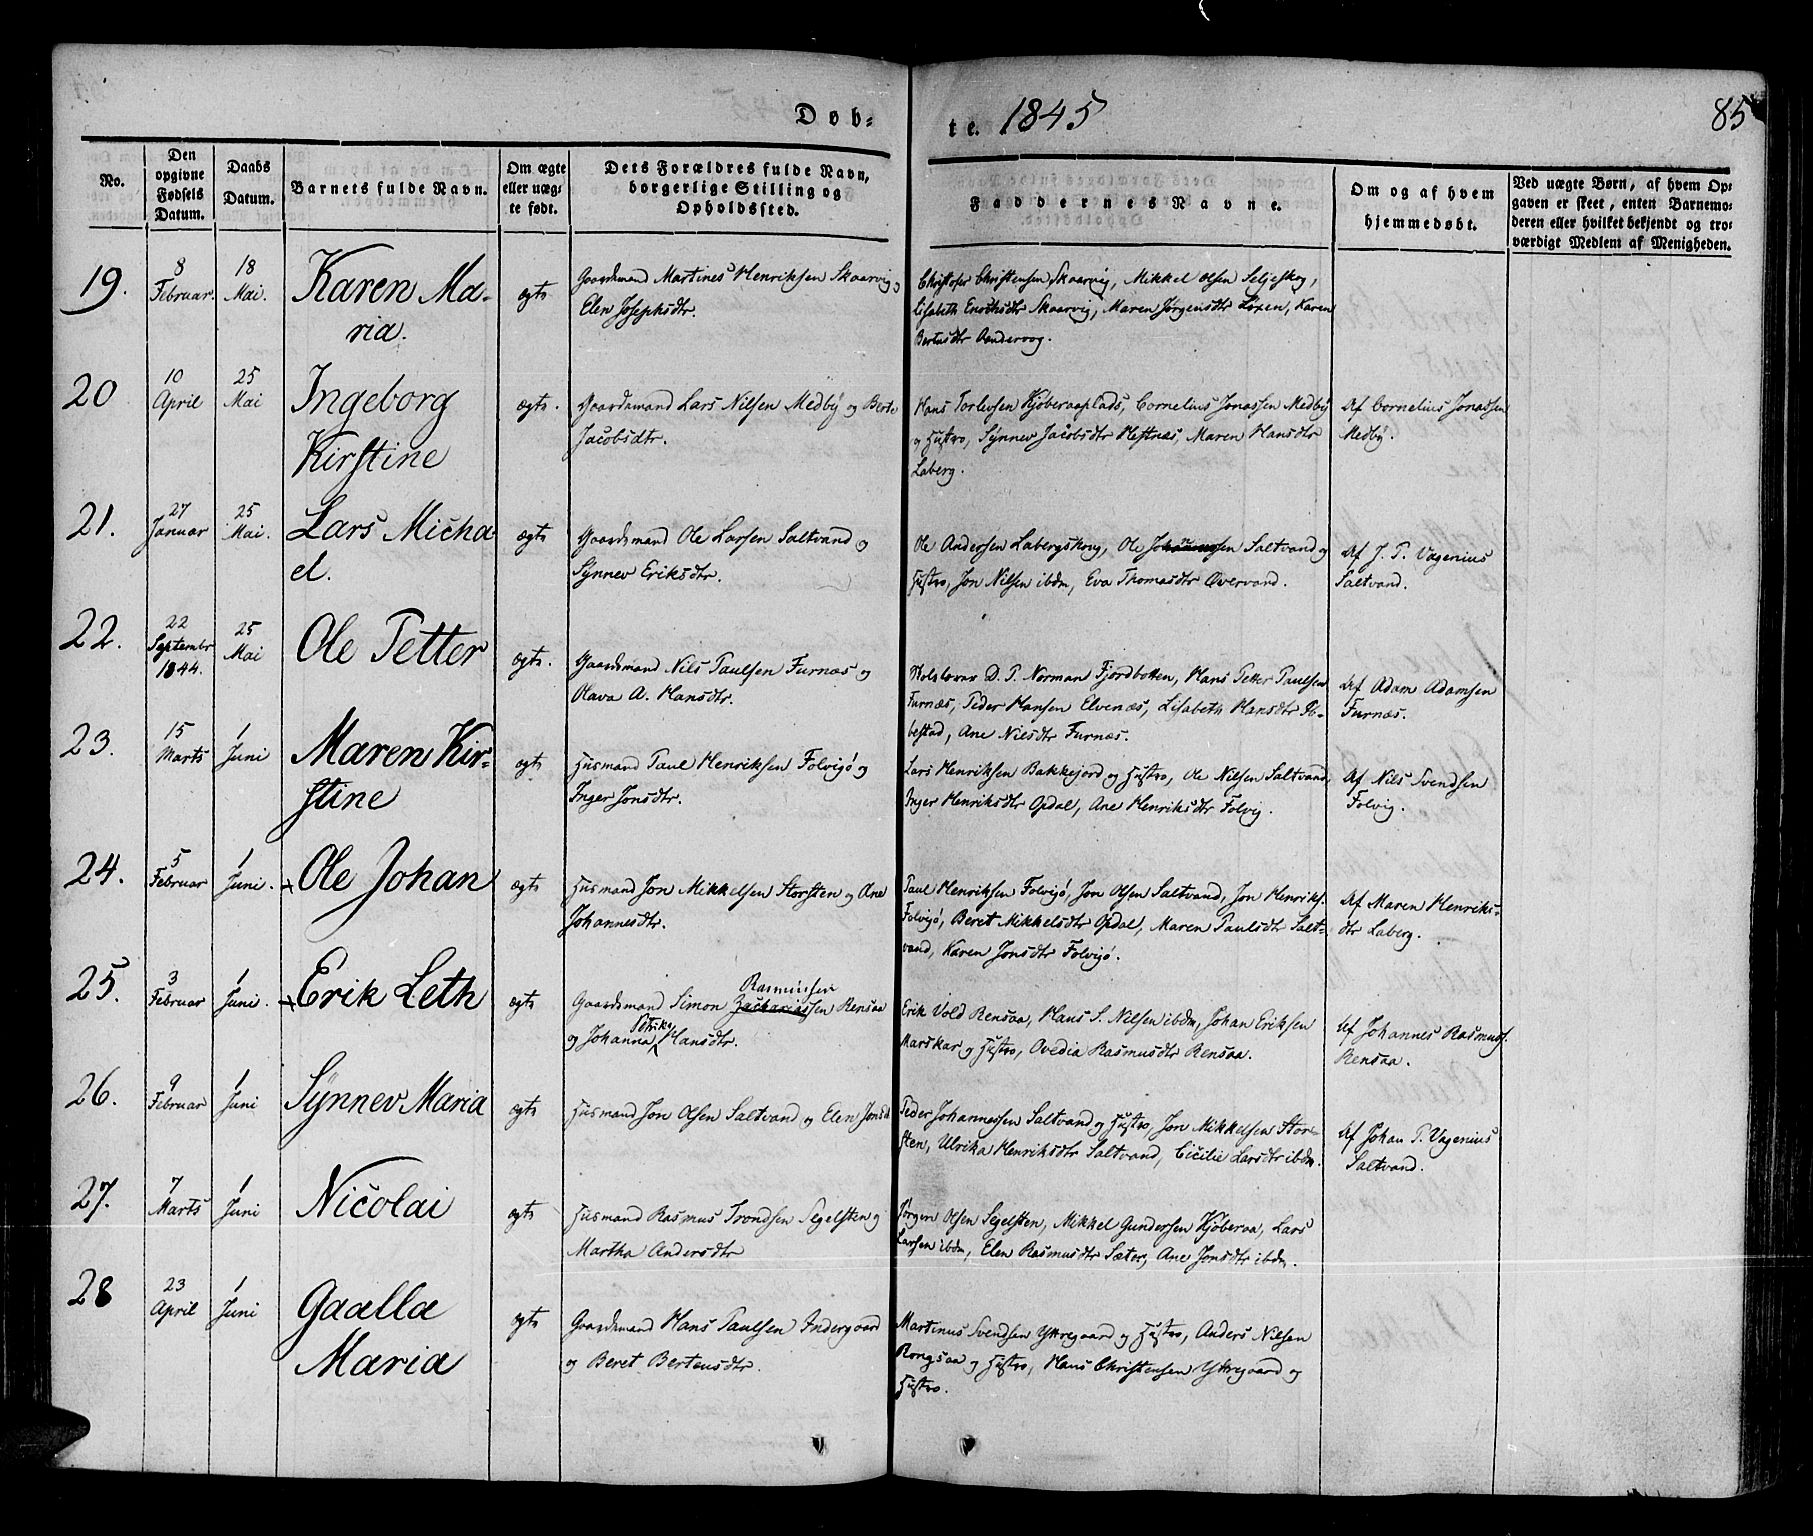 Døb-
te. 1845
85
No.
Den
opgivne
Fødsels
Datum.
Daabs
Datum.
Barnets fulde Navn.
Om ægte
eller uæg-
te født.
Dets Forældres fulde Navn,
borgerlige Stilling og
Opholdssted.
Faddernes Navne.
Om og af hvem
hjemmedøbt.
Ved uægte Børn, af hvem Op-
gaven er skeet, enten Barnemo-
deren eller hvilket bekjendt og tro-
værdigt Medlem af Menigheden.
19.
8
Februar.
18
Mai.
Karen Ma-
ria.
ægte
Gaardmand Martines Henriksen Skaarvig og
Elen Josephsdtr.
Christofer Christensen Skaarvig, Mikkel Olsen Seljeskog,
Lisabeth Enochsdtr Skaarvig, Maren Jørgensdtr Loxen, Karen
Bertusdtr
20
10
April
25
Mai
Ingeborg
Kirstine
ægte.
Gaardmand Lars Nilsen Medby og Berte
Jacobsdtr.
Hans Torlevsen Kjøberaaplads, Cornelius Jonassen Medby
og Hustro, Synnev Jacobsdtr Hestnæs, Maren Hansdtr
Laberg.
Af Cornelius Jonassen
Medby.
21.
27
Januar
25
Mai.
Lars Micha
el.
ægte
Gaardmand Ole Larsen Saltvand og
Synnev Eriksdtr.
Ole Andersen Labergskog, Ole Johannesen Saltvand og
Hustro, Jon Nilsen ibdm, Eva Thomasdtr Overvand.
Af J. P. Vagenius
Saltvand.
22.
22
Septembr
1844.
25
Mai
Ole Petter
ægte.
Gaardmand Nils Paulsen Furnæs og
Olava A. Hansdtr.
Skolelærer D. P. Norman Fjordbotten, Hans Petter Paulsen
Furnæs, Peder Hansen Elvenæs, Lisabeth Hansdtr Ib-
bestad, Ane Nilsdtr Furnæs.
Af Adam Adamsen
Furnæs.
23.
15
Marts
1
Juni
Maren Kir-
stine
ægte
Husmand Paul Henriksen Folvigø og
Inger Jonsdtr.
Lars Henriksen Bakkejord og Hustro, Ole Nilsen Saltvand,
Inger Henriksdtr Opdal, Ane Henriksdtr Folvig.
Af Nils Svendsen
Folvig.
24.
5
Februar
1
Juni.
Ole Johan
ægte
Husmand Jon Mikkelsen Storsten og Ane
Johannesdtr.
Paul Henriksen Folvigø, Jon Olsen Saltvand, Jon Henriks.
Folvigø, Beret Mikkelsdtr Opdal, Maren Paulsdtr Salt-
vand, Karen Jonsdtr Folvigø.
Af Maren Henriks-
dtr Laberg.
25.
3
Februar
1
Juni.
Erik Leth
ægte
Rasmussen
Gaardmand Simon Zachariassen Rensaa
og Johanna Petrike Hansdtr.
Erik Vold Rensaa, Hans S. Nilsen ibdm, Johan Eriksen
Marskar og Hustro, Ovedia Rasmusdtr Rensaa.
Af Johannes Rasmuss.
Rensaa.
26.
9
Februar
1
Juni
Synnev Maria
ægte
Husmand Jon Olsen Saltvand og Elen Jonsd.
Peder Johannessen Saltvand og Hustro, Jon Mikkelsen Stor-
sten, Ulrika Henriksdtr Saltvand, Cicilie Larsdtr ibdm.
Af Johan P. Vagenius
Saltvand.
27.
7
Marts
1
Juni
Nicolai
ægte
Husmand Rasmus Trondsen Segelsten og
Martha Andersdtr
Jørgen Olsen Segelsten, Mikkel Gundersen Kjøberaa, Lars
Larsen ibdm, Elen Rasmusdtr Sæter, Ane Jonsdtr ibdm.
28
23
April
1
Juni
Gaalla
Maria
ægte
Gaardmand Hans Paulsen Indergaard
og Beret Berteusdtr.
Martinus Svendsen Yttregaard og Hustro, Anders Nilsen
Rongsaa og Hustro, Hans Christensen Yttregaard og
Hustro.